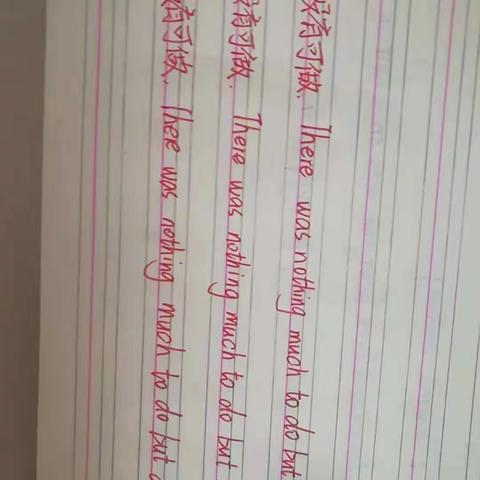 没有可做. There was nothing much to do but
没有可做. There was nothing much to do but
有可做. There was nothing much to do but